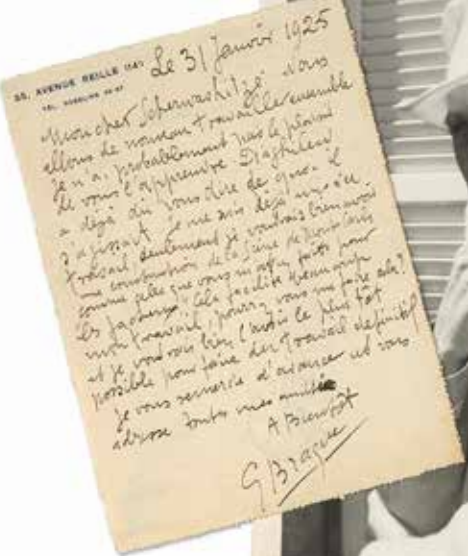 Le 31 Janvier 1925
AVENUE REILLE (14e)
Mon cher Schervachitzé nous
allons de nouveau travailler ensemble
je n'ai probablement pas le plaisir
de vous l'apprendre Diaghilew
a déjà dû vous dire de quoi il
s'agissait. je me suis déjà mis à ce
travail seulement je voudrais bien avoir
une construction de la scène de Monte Carlo
comme celle que vous m'aviez faite pour
les facheux. Cela facilite beaucoup
mon travail, pourrez vous me faire cela?
et je voudrais bien l'avoir le plus tôt
possible pour faire du travail definitif
je vous remercie d'avance et vous
adresse toutes mes amitiés
A Bientot
G Braque